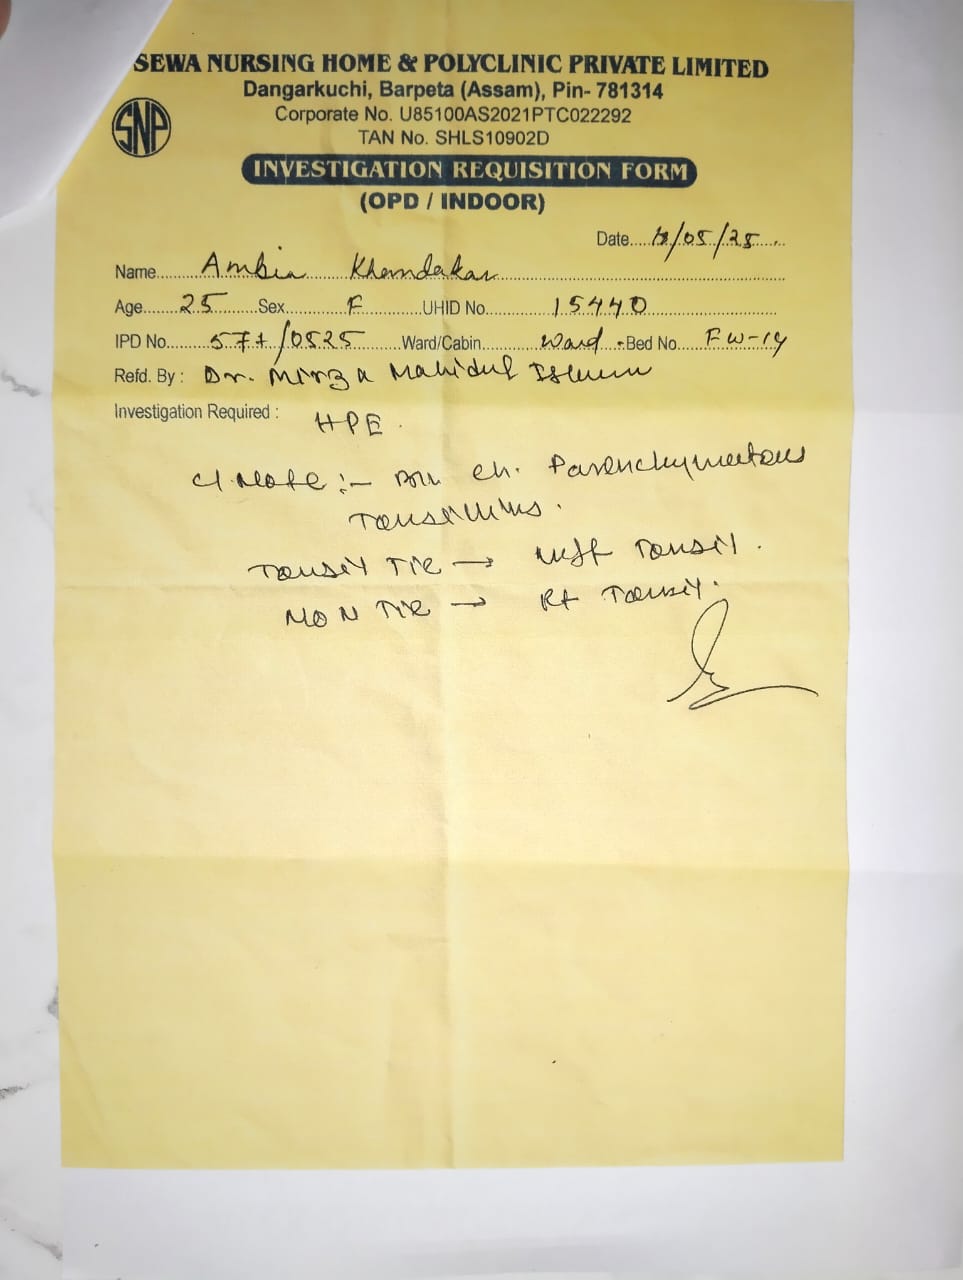 SEWA NURSING HOME & POLYCLINIC PRIVATE LIMITED
Dangarkuchi, Barpeta (Assam), Pin- 781314
Corporate No. U85100AS2021PTC022292
SNP
TAN No. SHLS10902D
INVESTIGATION REQUISITION FORM
(OPD / INDOOR)
Date..../05/25.....
Name........Ambia Khandakar
Age.......25......Sex............F............UHID No............15440
IPD No........571/0525......Ward/Cabin............Ward..Bed No....FW-14
Refd. By : Dr. Mirza Mahidul Islam
Investigation Required :
HPE.
Cl. Note :- ch. Parenchymatous
Tonsillitis.
Tonsil Tie → Left Tonsil.
Non Tie → Rt Tonsil.